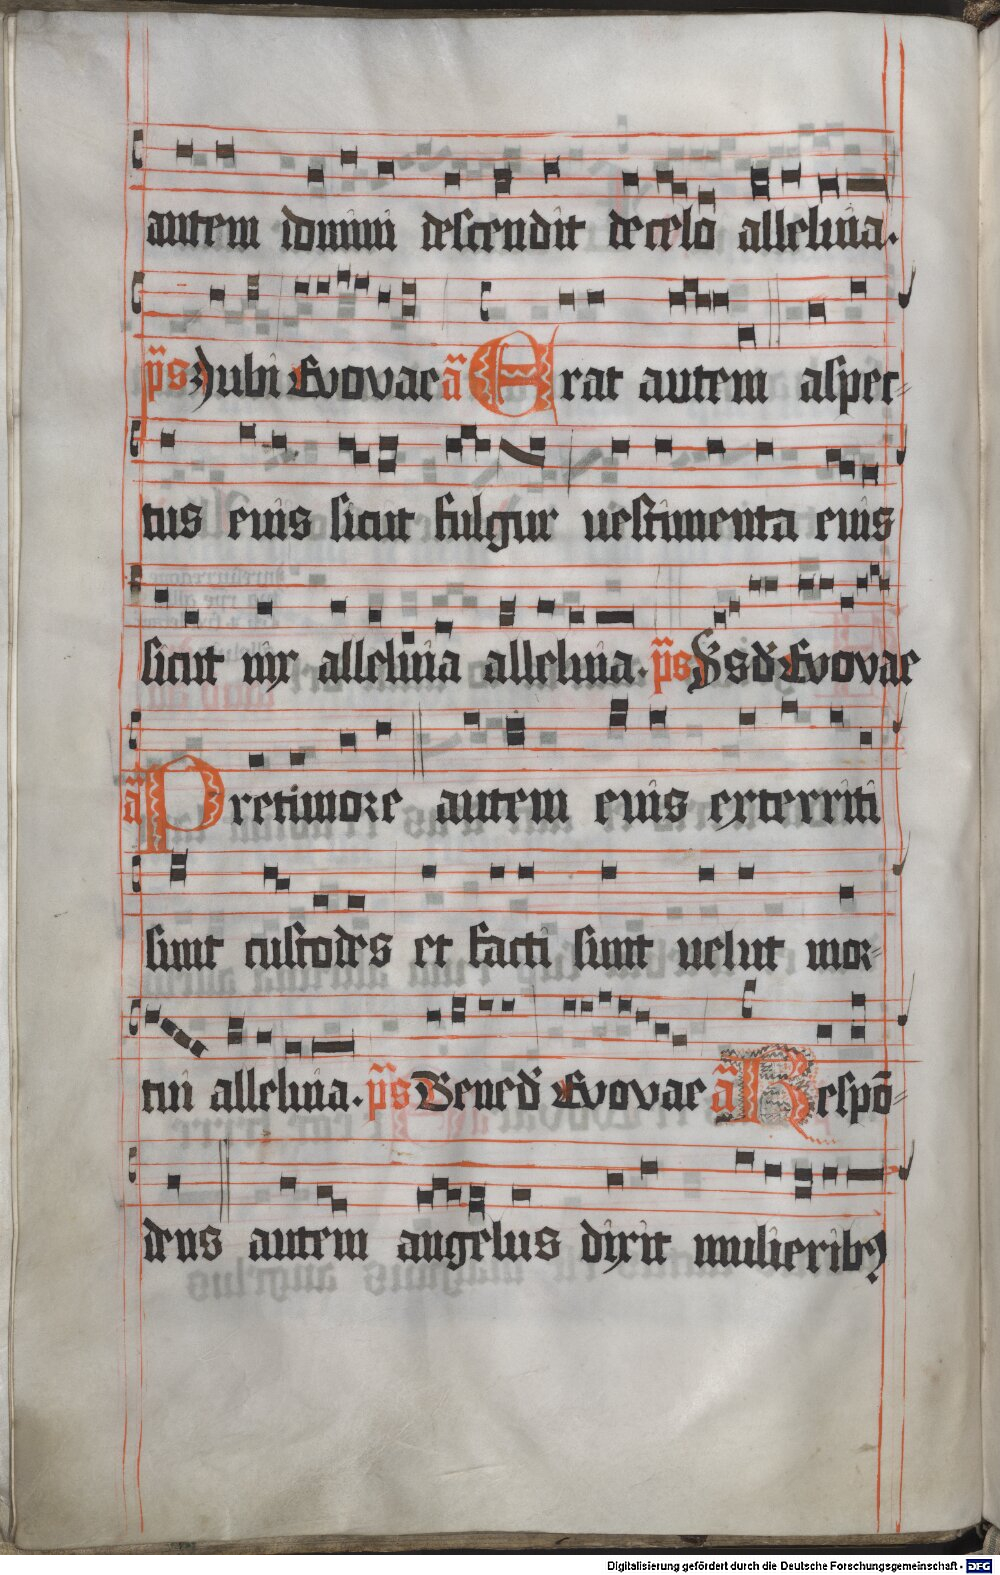 autem domini descendit de celo alleluia.
p̄s Jubi Evovae ā Erat autem aspec-
tus eius sicut fulgur uestimenta eius
sicut nix alleluia alleluia. p̄s Ds ds Evovae
ā Pre timore autem eius exterriti
sunt custodes et facti sunt uelut mor-
tui alleluia. p̄s Bened Evovae ā Respō-
dens autem angelus dixit mulierib9
Digitalisierung gefördert durch die Deutsche Forschungsgemeinschaft - DFG